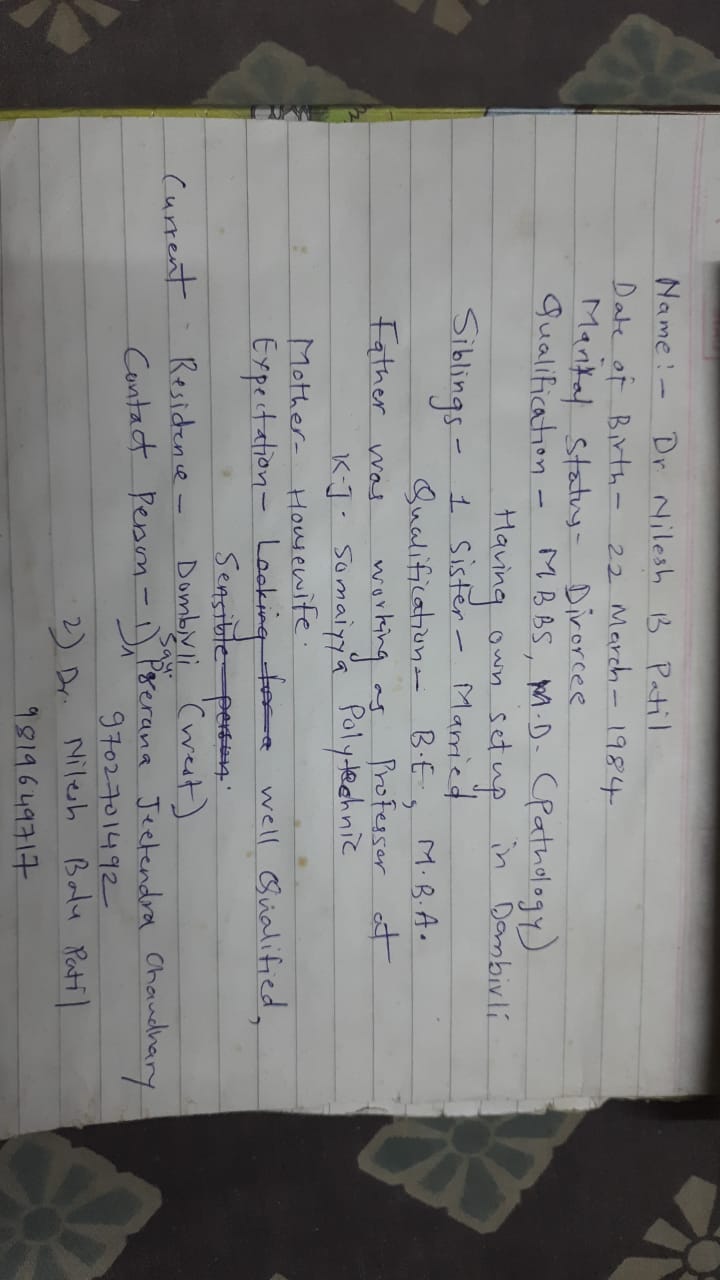 Name:- Dr Nilesh B Patil
Date of Birth- 22 March-1984
Marital Status- Divorcee
Qualification - MBBS, M.D. (Pathology)
Having own set up in Dombivli
Siblings- 1 Sister- Married
Qualification- B.E, M.B.A.
Father was working as Professor at
K.J. Somaiyya Polytechnic
Mother- Housewife.
Expectation- Looking for a well Qualified,
Sensible person.
Current - Residence - Dombivli (west)
Contact Person - 1) Sau. Prerana Jeetendra Chaudhary
9702701492
2) Dr. Nilesh Balu Patil
9819649717